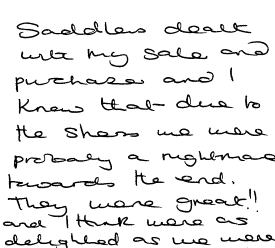 Saddlers dealt
with my sale and
purchase and I
know that due to
the stress we were
probably a nightmare
towards the end.
They were great!!
and I think were as
delighted as we were